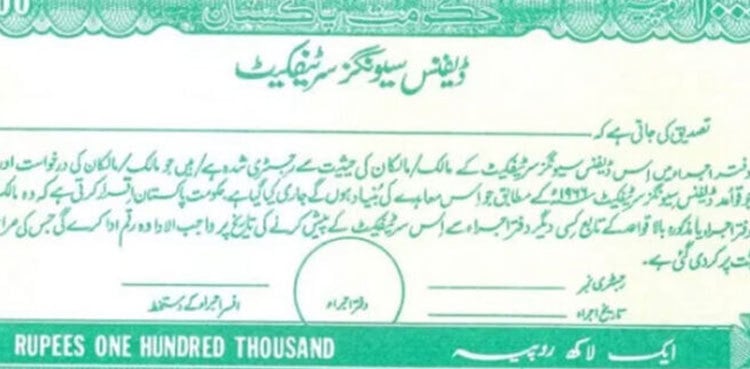 حکومت پاکستان
ڈیفنس سیونگز سرٹیفکیٹ
تصدیق کی جاتی ہے کہ
دفتر اجراء میں اس ڈیفنس سیونگز سرٹیفکیٹ کے مالک/مالکان کی حیثیت سے رجسٹری شدہ ہے/ہیں جو مالک/مالکان کی درخواست اور
قواعد ڈیفنس سیونگز سرٹیفکیٹ ۱۹۶۶ء کے مطابق جو اس معاہدے کی بنیاد ہوں گے جاری کیا گیا ہے حکومت پاکستان اقرار کرتی ہے کہ وہ مالک
دفتر اجراء یا مذکورہ بالا قواعد کے تابع کسی دیگر دفتر اجراء سے اس سرٹیفکیٹ کے پیش کرنے کی تاریخ پر واجب الادا وہ رقم ادا کرے گی جس کی
پر کر دی گئی ہے۔
رجسٹری نمبر
تاریخ اجراء
دفتر اجراء
افسر اجراء کے دستخط
RUPEES ONE HUNDRED THOUSAND ایک لاکھ روپیہ